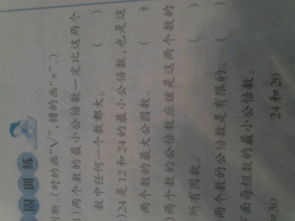 固训练
判断(对的画“√”,错的画“×”。)
1)两个数的最小公倍数一定比这两个
数中任何一个数都大。 ( )
)24是12和24的最小公倍数,也是这
两个数的最大公因数。 ( )
)两个数的公倍数应该是这两个数的
所有因数。 ( )
两个数的公倍数是有限的。 ( )
下面每组数的最小公倍数。
和30 24和20